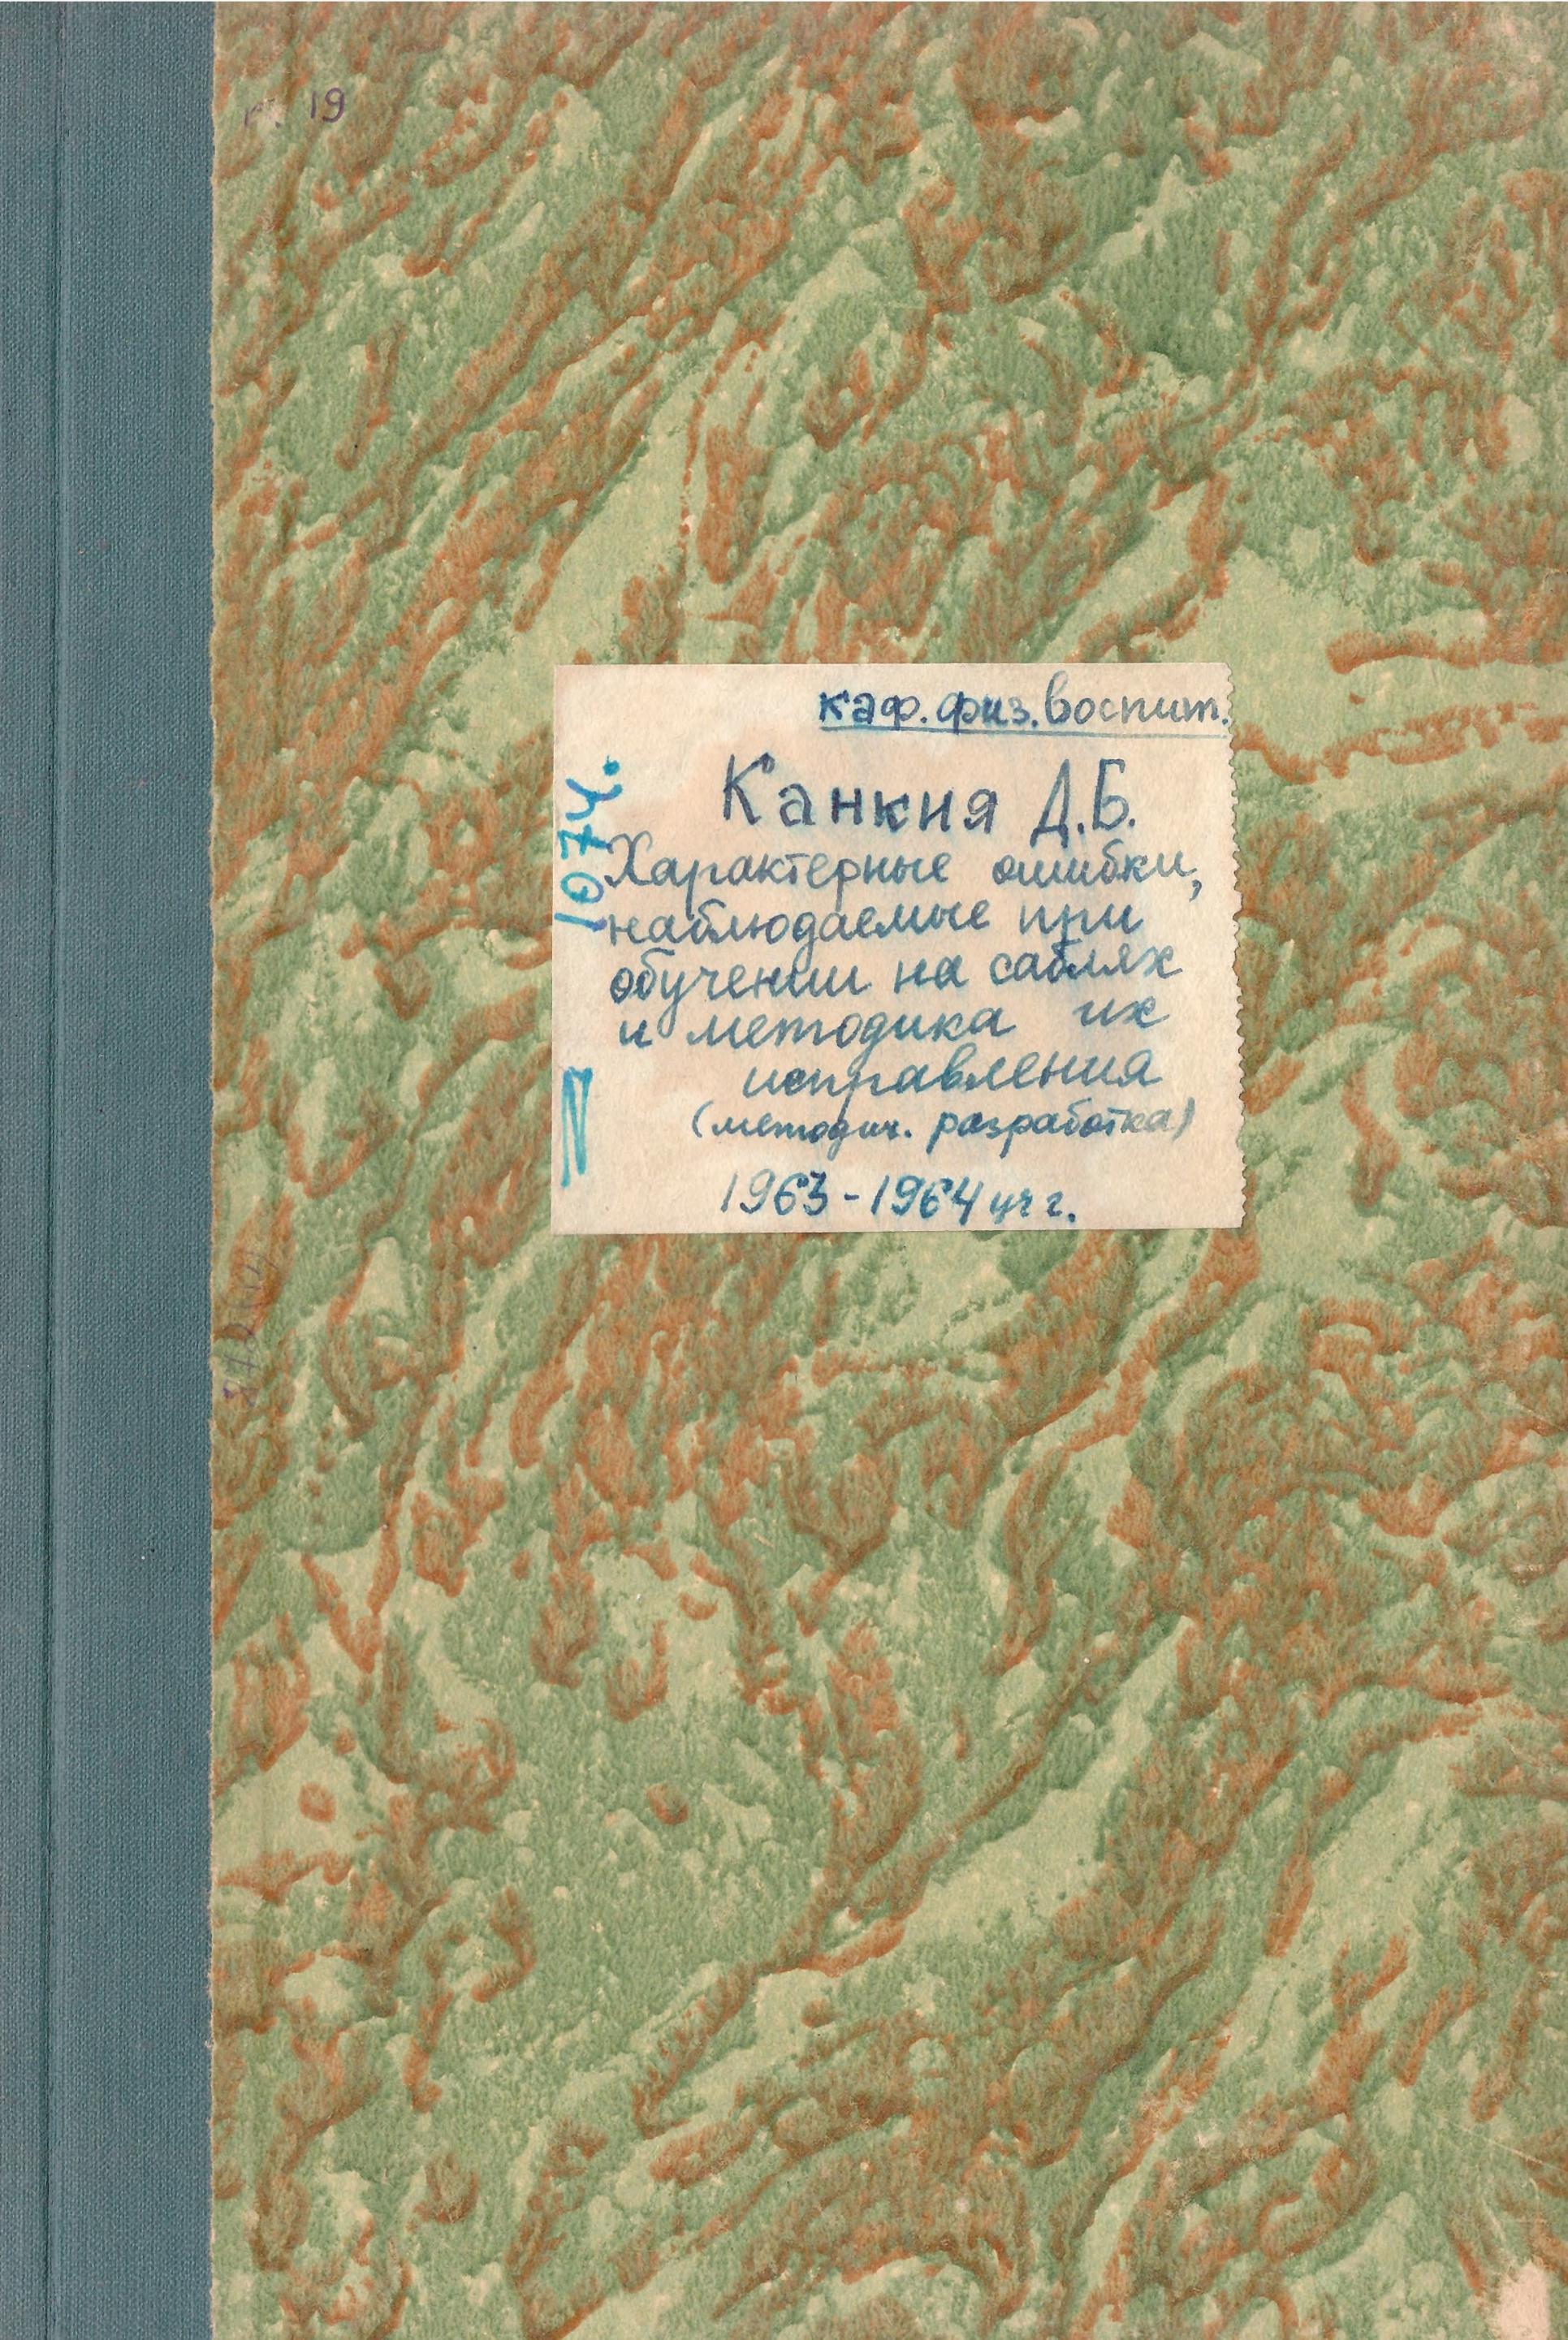 19
каф. физ. воспит.
Канкия Д.Б.
Характерные ошибки,
наблюдаемые при
обучении на саблях
и методика их
исправления
(методич. разработка)
1963-1964 уч г.
1074.